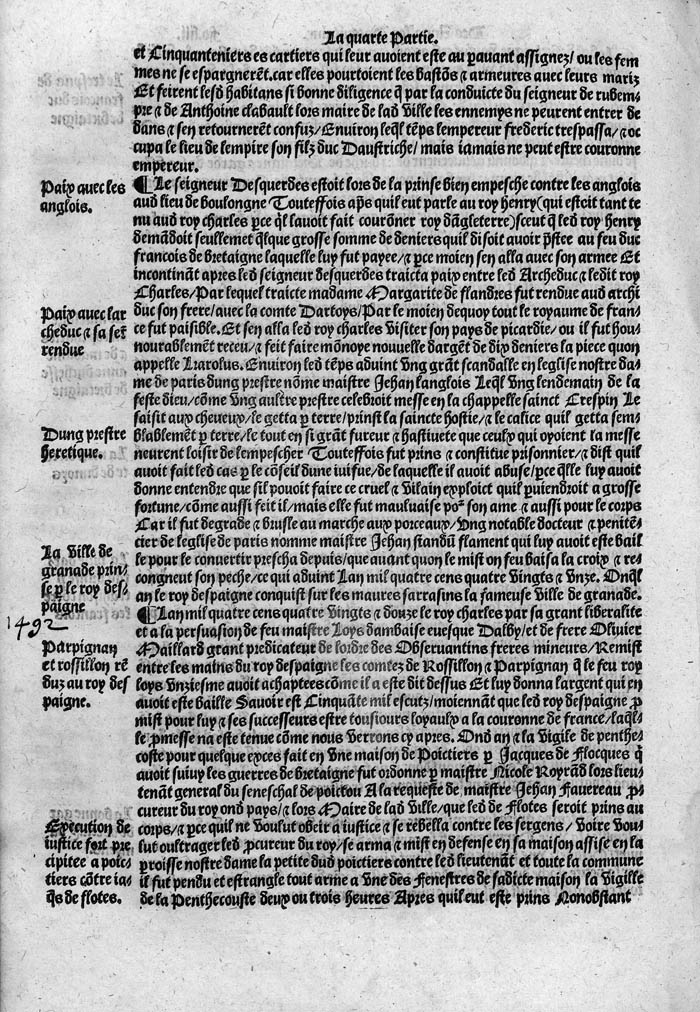 La quarte Partie.
et Cinquanteniers es cartiers qui leur auoient este au ꝑauant assignez/ ou les fem
mes ne se espargnerẽt.car elles pourtoient les bastõs ⁊ armeures auec leurs mariz
Et feirent lesd habitans si bonne diligence q̃ par la conduicte du seigneur de rubem-
pre ⁊ de Anthoine clabault lors maire de lad ville les ennemys ne peurent entrer de
dans ⁊ sen retournerẽt confuz/Enuiron leq̃l tẽps lempereur frederic trespassa/⁊ oc
cupa le lieu de lempire son filz duc Daustriche/ mais iamais ne peut estre couronne
empereur.
Paix auec les
anglois.
¶ Le seigneur Desquerdes estoit lors de la prinse bien empesche contre les anglois
aud lieu de boulongne Touteffois apꝭ quil eut parle au roy henry(qui estoit tant te
nu aud roy charles ꝑce q̃l lauoit fait courõner roy dãgleterre)sceut q̃ led roy henry
demãdoit seullemẽt q̃lque grosse somme de deniers quil disoit auoir p̃stee au feu duc
francois de bretaigne laquelle luy fut payee/⁊ ꝑce moien sen alla auec son armee Et
incontināt apres led seigneur desquerdes traicta paix entre led Archeduc ⁊ ledit roy
Charles/Par lequel traicte madame Margarite de flandres fut rendue aud archi
Paix auec lar
cheduc ⁊ sa seʳ
rendue
duc son frere/auec la comte Dartoys/Par le moien dequoy tout le royaume de fran-
ce fut paisible. Et sen alla led roy charles visiter son pays de picardie/ ou il fut hon-
nourablemẽt receu/⁊ feit faire mõnoye nouuelle dargẽt de dix deniers la piece quon
appelle Karolus. Enuiron led tẽps aduint vng grãt scandalle en leglise nostre da-
me de paris dung prestre nõme maistre Jehan langlois Leq̃l vng lendemain de la
feste dieu/cõme vng aultre prestre celebroit messe en la chappelle sainct Crespin Le
saisit aux cheueux/le getta ꝑ terre/prinst la saincte hostie/⁊ le calice quil getta sem-
Dung prestre
heretique.
blablemẽt ꝑ terre/le tout en si grãt fureur ⁊ hastiuete que ceulx qui oyoient la messe
neurent loisir de lempescher Touteffois fut prins ⁊ constitue prisonnier/⁊ dist quil
auoit fait led cas ꝑ le cõseil dune iuifue/de laquelle il auoit abuse/ꝑce q̃lle luy auoit
donne entendre que sil pouoit faire ce cruel ⁊ vilain exploict quil ꝑuiendroit a grosse
fortune/cõme aussi feit il/mais elle fut mauluaise poʳ son ame ⁊ aussi pour le corps
Car il fut degrade ⁊ brusle au marche aux porceaux/vng notable docteur ⁊ penitẽ-
cier de leglise de paris nomme maistre Jehan standũ flament qui luy auoit este bail
La ville de
granade prin-
se ꝑ le roy des-
paigne
1492
le pour le conuertir prescha depuis/que auant quon le mist on feu baisa la croix ⁊ re-
congneut son peche/ce qui aduint Lan mil quatre cens quatre vingts ⁊ vnze. Onq̃l
an le roy despaigne conquist sur les maures sarrasins la fameuse ville de granade.
¶ Lan mil quatre cens quatre vingts ⁊ douze le roy charles par sa grant liberalite
et a la persuasion de feu maistre Loys dambaise euesque Dalby/et de frere Oliuier
Parpignan
et rossillon rẽ
duz au roy des
paigne.
Maillard grant predicateur de lordre des Obseruantins freres mineurs/Remist
entre les mains du roy despaigne les comtez de Rossillon ⁊ Parpignan q̃ le feu roy
loys vnziesme auoit achaptees cõme il a este dit dessus Et luy donna largent qui en
auoit este baille Sauoir est Cinquãte mil escutz/moiennãt que led roy despaigne ꝓ
mist pour luy ⁊ ses successeurs estre tousiours loyaulx a la couronne de france/laq̃l-
le ꝓmesse na este tenue cõme nous verrons cy apres. Ond an ⁊ la vigile de penthe-
coste pour quelque exces fait en vne maison de Poictiers ꝑ Jacques de Flocques q̃
auoit suiuy les guerres de bretaigne fut ordonne ꝑ maistre Nicole Royrand lors lieu-
tenãt general du seneschal de poictou A la requeste de maistre Jehan Fauereau ꝓ-
cureur du roy ond pays/⁊ lors Maire de lad ville/que led de Flotes seroit prins au
Execution de
iustice fort pre
cipitee a poic-
tiers cõtre ia-
q̃s de flotes.
corps/⁊ ꝑce quil ne voulut obeir a iustice ⁊ se rebella contre les sergens/ voire vou-
lut oultrager led ꝓcureur du roy/se arma ⁊ mist en defense en sa maison assise en la
ꝑroisse nostre dame la petite dud poictiers contre led lieutenãt et toute la commune
il fut pendu et estrangle tout arme a vne des fenestres de sadicte maison la vigille
de la Penthecouste deux ou trois heures Apres quil eut este prins Nonobstant